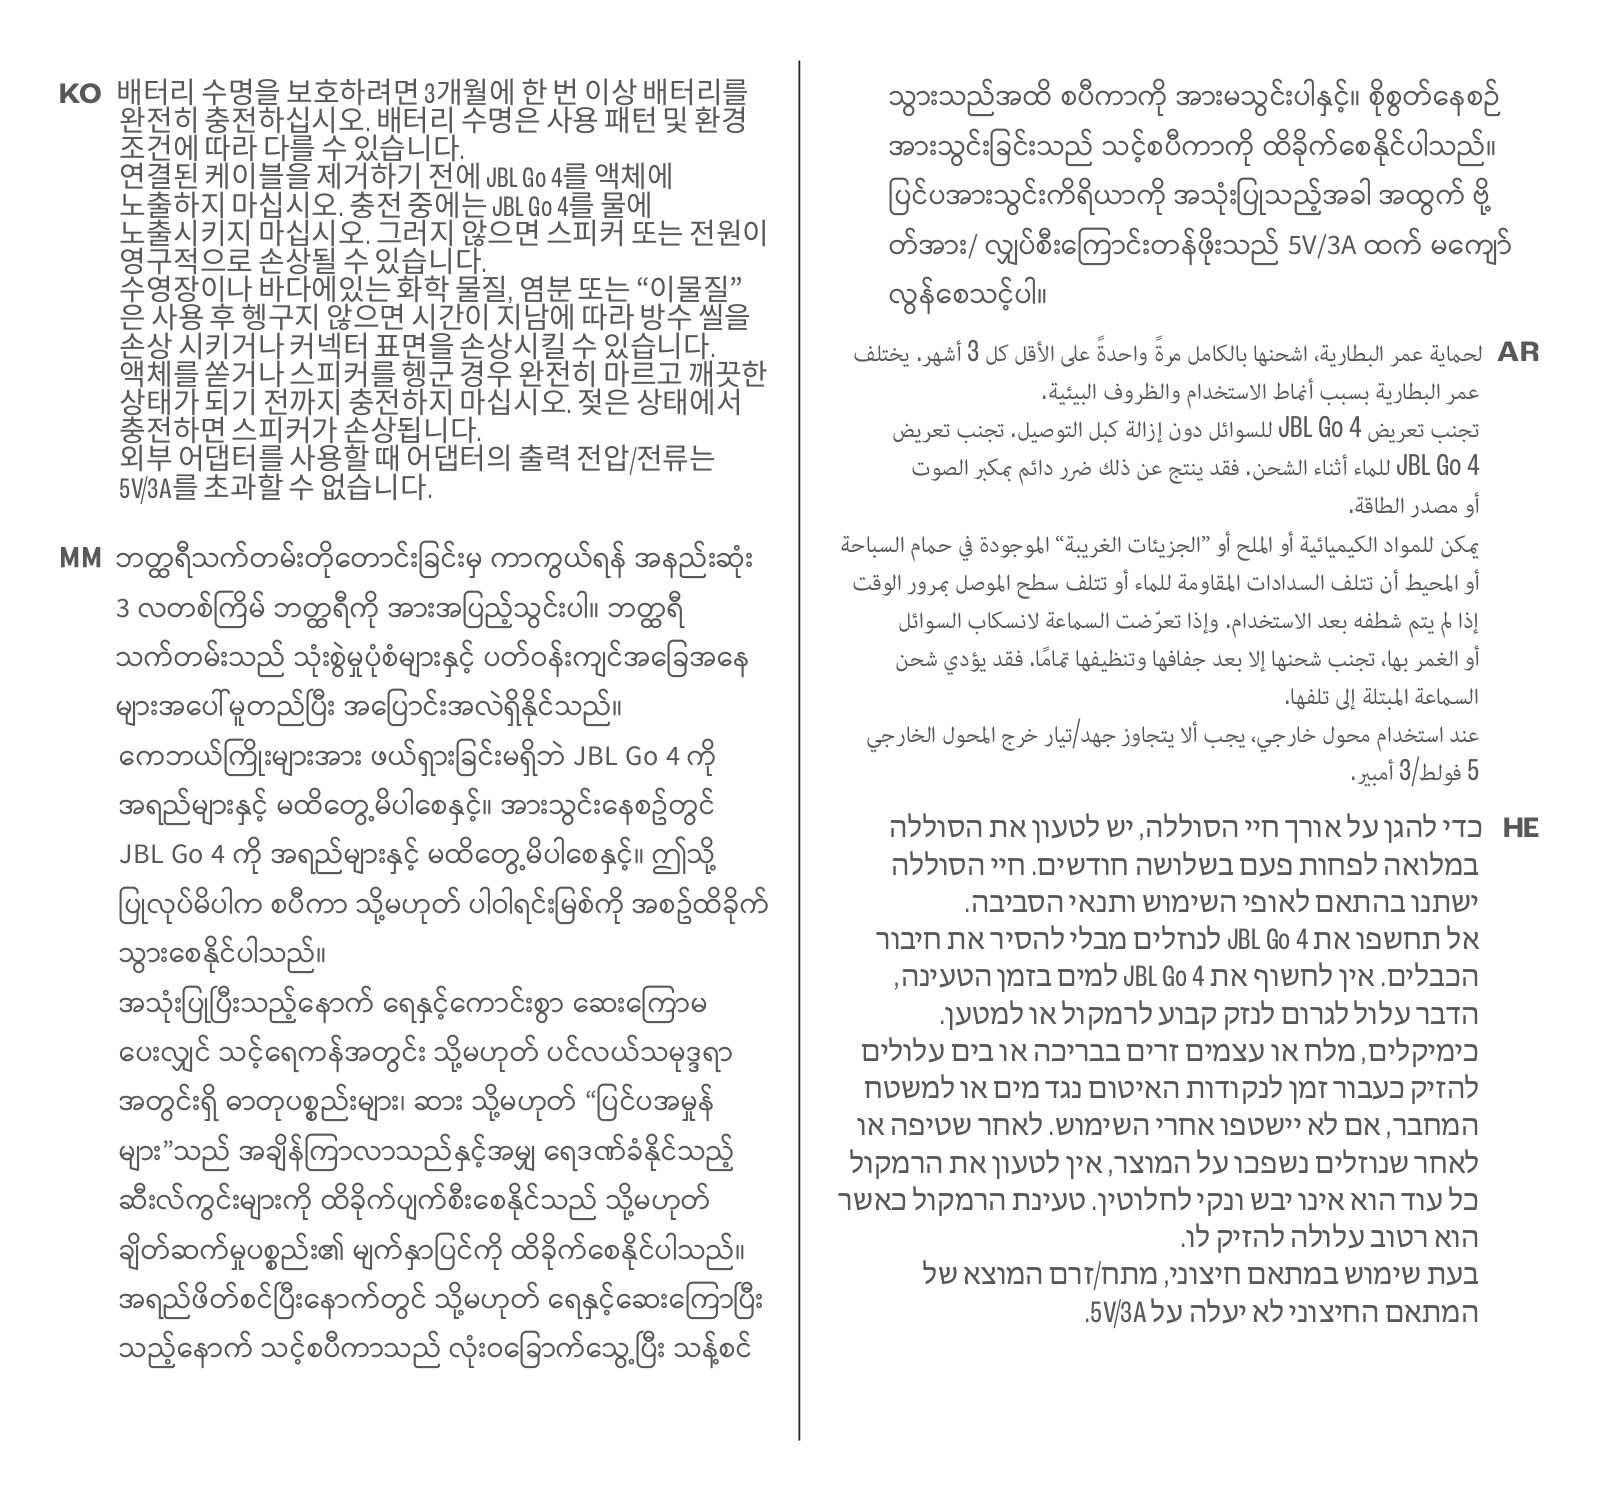 KO 배터리 수명을 보호하려면 3개월에 한 번 이상 배터리를
완전히 충전하십시오. 배터리 수명은 사용 패턴 및 환경
조건에 따라 다를 수 있습니다.
연결된 케이블을 제거하기 전에 JBL Go 4를 액체에
노출하지 마십시오. 충전 중에는 JBL Go 4를 물에
노출시키지 마십시오. 그러지 않으면 스피커 또는 전원이
영구적으로 손상될 수 있습니다.
수영장이나 바다에있는 화학 물질, 염분 또는 “이물질”
은 사용 후 헹구지 않으면 시간이 지남에 따라 방수 씰을
손상 시키거나 커넥터 표면을 손상시킬 수 있습니다.
액체를 쏟거나 스피커를 헹군 경우 완전히 마르고 깨끗한
상태가 되기 전까지 충전하지 마십시오. 젖은 상태에서
충전하면 스피커가 손상됩니다.
외부 어댑터를 사용할 때 어댑터의 출력 전압/전류는
5V/3A를 초과할 수 없습니다.
MM ဘတ္ထရီသက်တမ်းတိုတောင်းခြင်းမှ ကာကွယ်ရန် အနည်းဆုံး
3 လတစ်ကြိမ် ဘတ္ထရီကို အားအပြည့်သွင်းပါ။ ဘတ္ထရီ
သက်တမ်းသည် သုံးစွဲမှုပုံစံများနှင့် ပတ်ဝန်းကျင်အခြေအနေ
များအပေါ်မူတည်ပြီး အပြောင်းအလဲရှိနိုင်သည်။
ကေဘယ်ကြိုးများအား ဖယ်ရှားခြင်းမရှိဘဲ JBL Go 4 ကို
အရည်များနှင့် မထိတွေ့မိပါစေနှင့်။ အားသွင်းနေစဥ်တွင်
JBL Go 4 ကို အရည်များနှင့် မထိတွေ့မိပါစေနှင့်။ ဤသို့
ပြုလုပ်မိပါက စပီကာ သို့မဟုတ် ပါဝါရင်းမြစ်ကို အစဥ်ထိခိုက်
သွားစေနိုင်ပါသည်။
အသုံးပြုပြီးသည့်နောက် ရေနှင့်ကောင်းစွာ ဆေးကြောမ
ပေးလျှင် သင့်ရေကန်အတွင်း သို့မဟုတ် ပင်လယ်သမုဒ္ဒရာ
အတွင်းရှိ ဓာတုပစ္စည်းများ၊ ဆား သို့မဟုတ် “ပြင်ပအမှုန်
များ”သည် အချိန်ကြာလာသည်နှင့်အမျှ ရေဒဏ်ခံနိုင်သည့်
ဆီးလ်ကွင်းများကို ထိခိုက်ပျက်စီးစေနိုင်သည် သို့မဟုတ်
ချိတ်ဆက်မှုပစ္စည်း၏ မျက်နှာပြင်ကို ထိခိုက်စေနိုင်ပါသည်။
အရည်ဖိတ်စင်ပြီးနောက်တွင် သို့မဟုတ် ရေနှင့်ဆေးကြောပြီး
သည့်နောက် သင့်စပီကာသည် လုံးဝခြောက်သွေ့ပြီး သန့်စင်
သွားသည်အထိ စပီကာကို အားမသွင်းပါနှင့်။ စိုစွတ်နေစဉ်
အားသွင်းခြင်းသည် သင့်စပီကာကို ထိခိုက်စေနိုင်ပါသည်။
ပြင်ပအားသွင်းကိရိယာကို အသုံးပြုသည့်အခါ အထွက် ဗို့
တ်အား/ လျှပ်စီးကြောင်းတန်ဖိုးသည် 5V/3A ထက် မကျော်
လွန်စေသင့်ပါ။
AR لحماية عمر البطارية، اشحنها بالكامل مرةً واحدةً على الأقل كل 3 أشهر. يختلف
عمر البطارية بسبب أنماط الاستخدام والظروف البيئية.
تجنب تعريض JBL Go 4 للسوائل دون إزالة كبل التوصيل. تجنب تعريض
JBL Go 4 للماء أثناء الشحن. فقد ينتج عن ذلك ضرر دائم بمكبر الصوت
أو مصدر الطاقة.
يمكن للمواد الكيميائية أو الملح أو ”الجزيئات الغريبة“ الموجودة في حمام السباحة
أو المحيط أن تتلف السدادات المقاومة للماء أو تتلف سطح الموصل بمرور الوقت
إذا لم يتم شطفه بعد الاستخدام. وإذا تعرّضت السماعة لانسكاب السوائل
أو الغمر بها، تجنب شحنها إلا بعد جفافها وتنظيفها تمامًا. فقد يؤدي شحن
السماعة المبتلة إلى تلفها.
عند استخدام محول خارجي، يجب ألا يتجاوز جهد/تيار خرج المحول الخارجي
5 فولط/3 أمبير.
HE כדי להגן על אורך חיי הסוללה, יש לטעון את הסוללה
במלואה לפחות פעם בשלושה חודשים. חיי הסוללה
ישתנו בהתאם לאופי השימוש ותנאי הסביבה.
אל תחשפו את JBL Go 4 לנוזלים מבלי להסיר את חיבור
הכבלים. אין לחשוף את JBL Go 4 למים בזמן הטעינה,
הדבר עלול לגרום לנזק קבוע לרמקול או למטען.
כימיקלים, מלח או עצמים זרים בבריכה או בים עלולים
להזיק כעבור זמן לנקודות האיטום נגד מים או למשטח
המחבר, אם לא יישטפו אחרי השימוש. לאחר שטיפה או
לאחר שנוזלים נשפכו על המוצר, אין לטעון את הרמקול
כל עוד הוא אינו יבש ונקי לחלוטין. טעינת הרמקול כאשר
הוא רטוב עלולה להזיק לו.
בעת שימוש במתאם חיצוני, מתח/זרם המוצא של
המתאם החיצוני לא יעלה על 5V/3A.